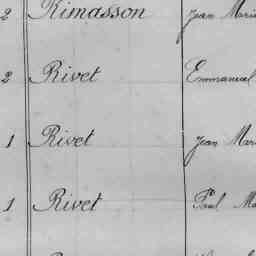 2 Rimasson Jean Marie
2 Rivet Emmanuel
1 Rivet Jean Mar
1 Rivet Paul Ma